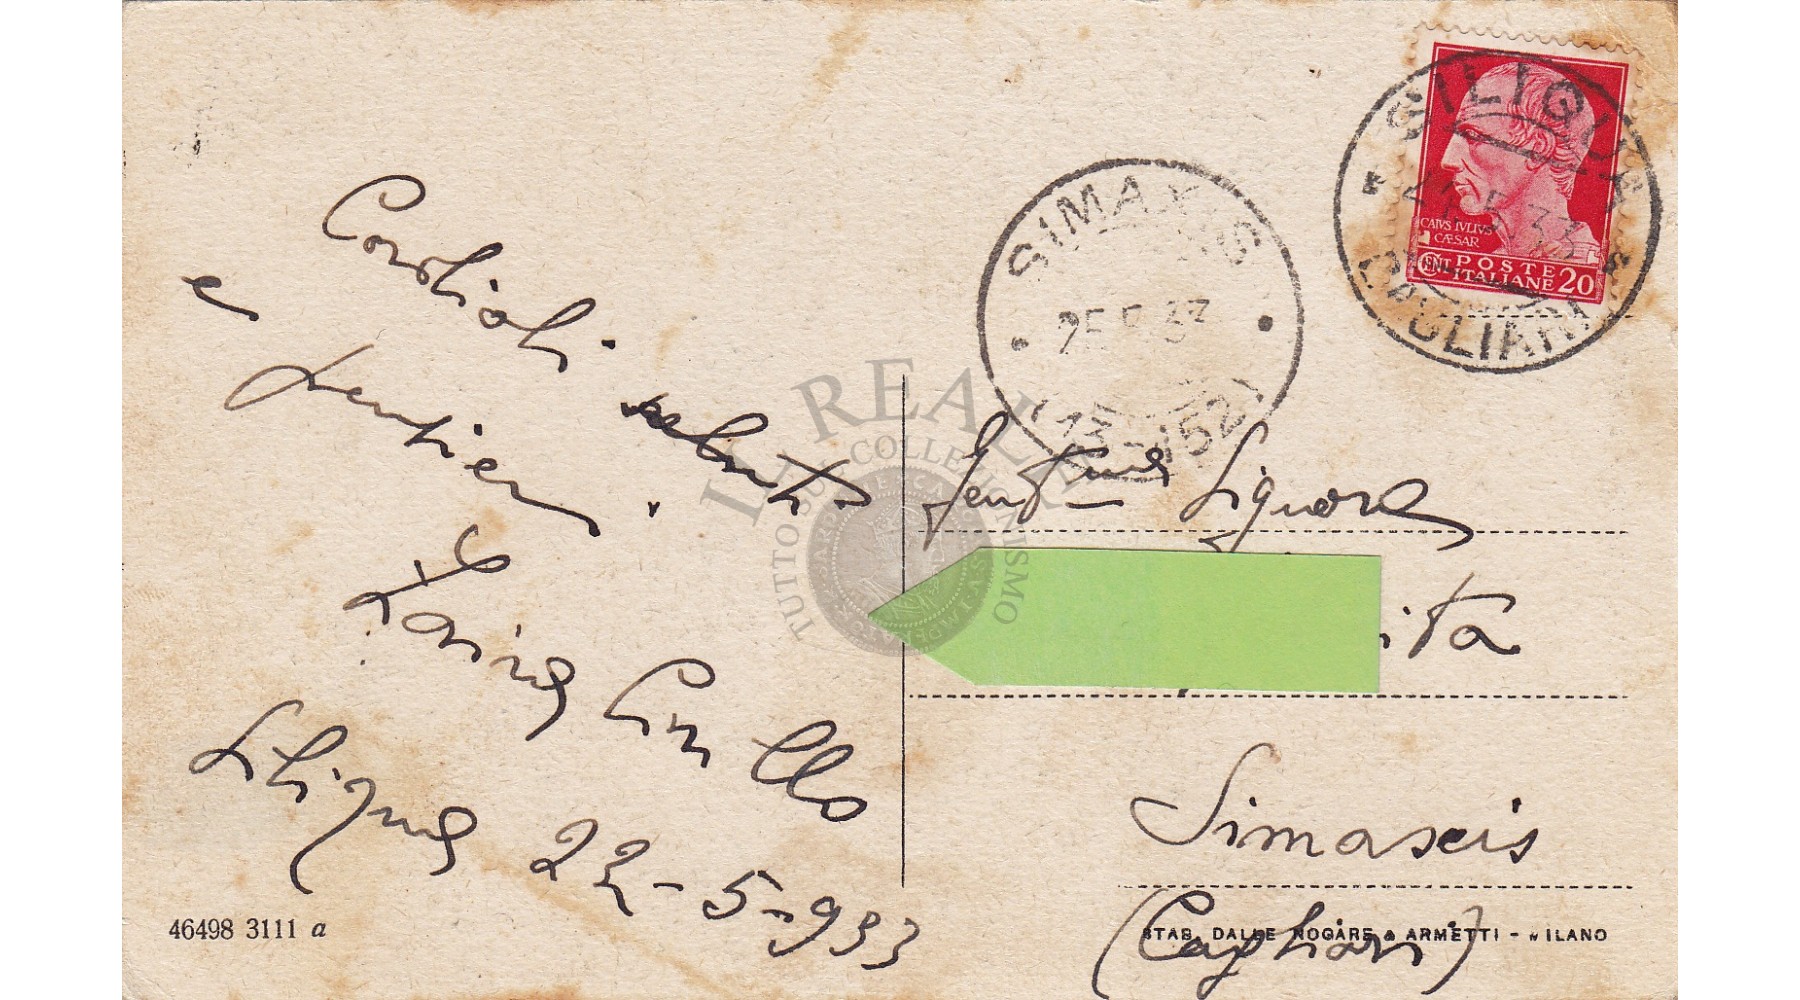 Cordiali saluti
e
SILIQUA
24.5.33
CAGLIARI
CAIVS IVLIVS
CÆSAR
POSTE
CENT ITALIANE 20
SIMAXIS
25.5.33
(13-152)
IL REALE
TUTTO SUL COLLEZIONISMO
Gent.ma Signora
ita
Siliqua 22-5-933
Simaxis
(Cagliari)
46498 3111 a
STAB. DALLE NOGARE & ARMETTI - MILANO